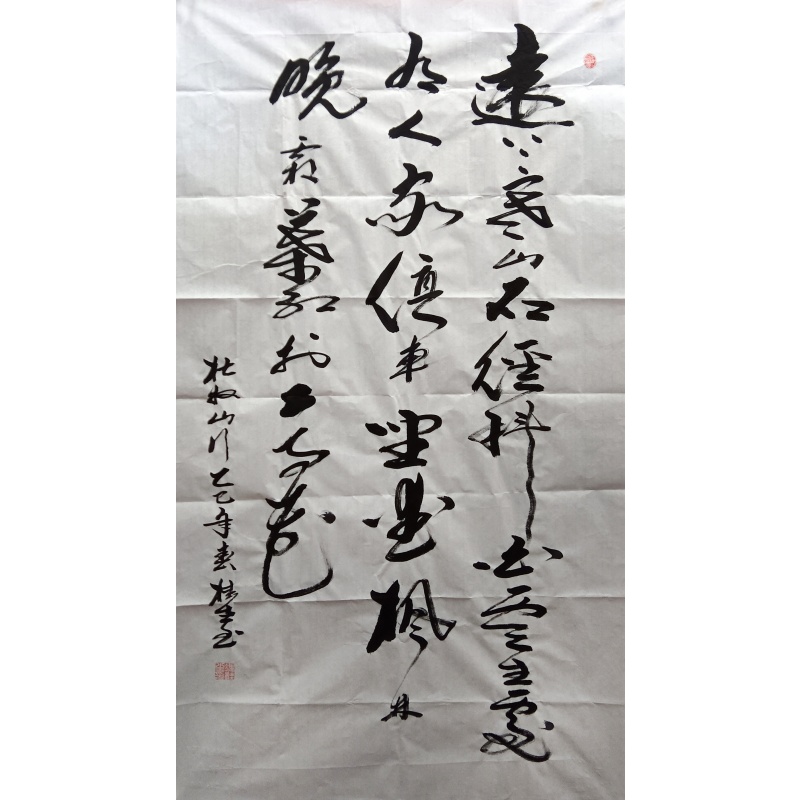 遠上寒山石徑斜白雲生處
有人家停車坐愛楓林
晚霜葉紅於二月花
杜牧山行乙巳年春桂書